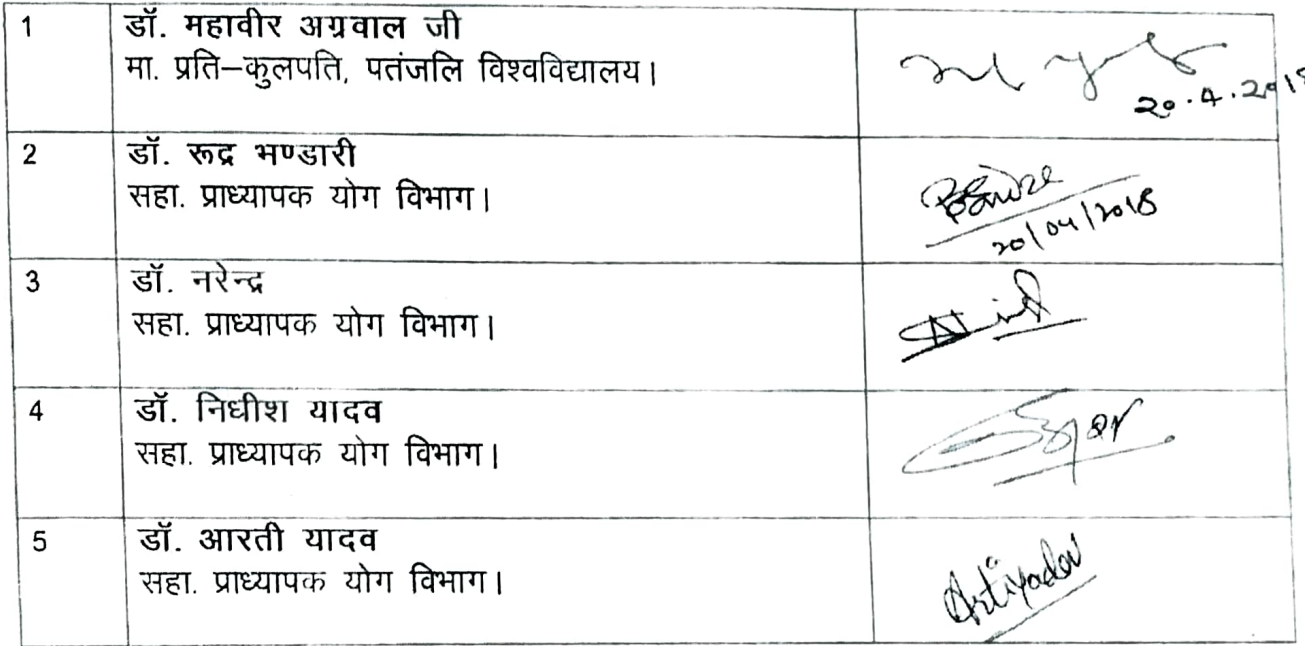 1
डॉ. महावीर अग्रवाल जी
मा. प्रति–कुलपति, पतंजलि विश्वविद्यालय।
20.4.2018
2
डॉ. रूद्र भण्डारी
सहा. प्राध्यापक योग विभाग।
20/04/2018
3
डॉ. नरेन्द्र
सहा. प्राध्यापक योग विभाग।
4
डॉ. निधीश यादव
सहा. प्राध्यापक योग विभाग।
5
डॉ. आरती यादव
सहा. प्राध्यापक योग विभाग।
Artiyadav